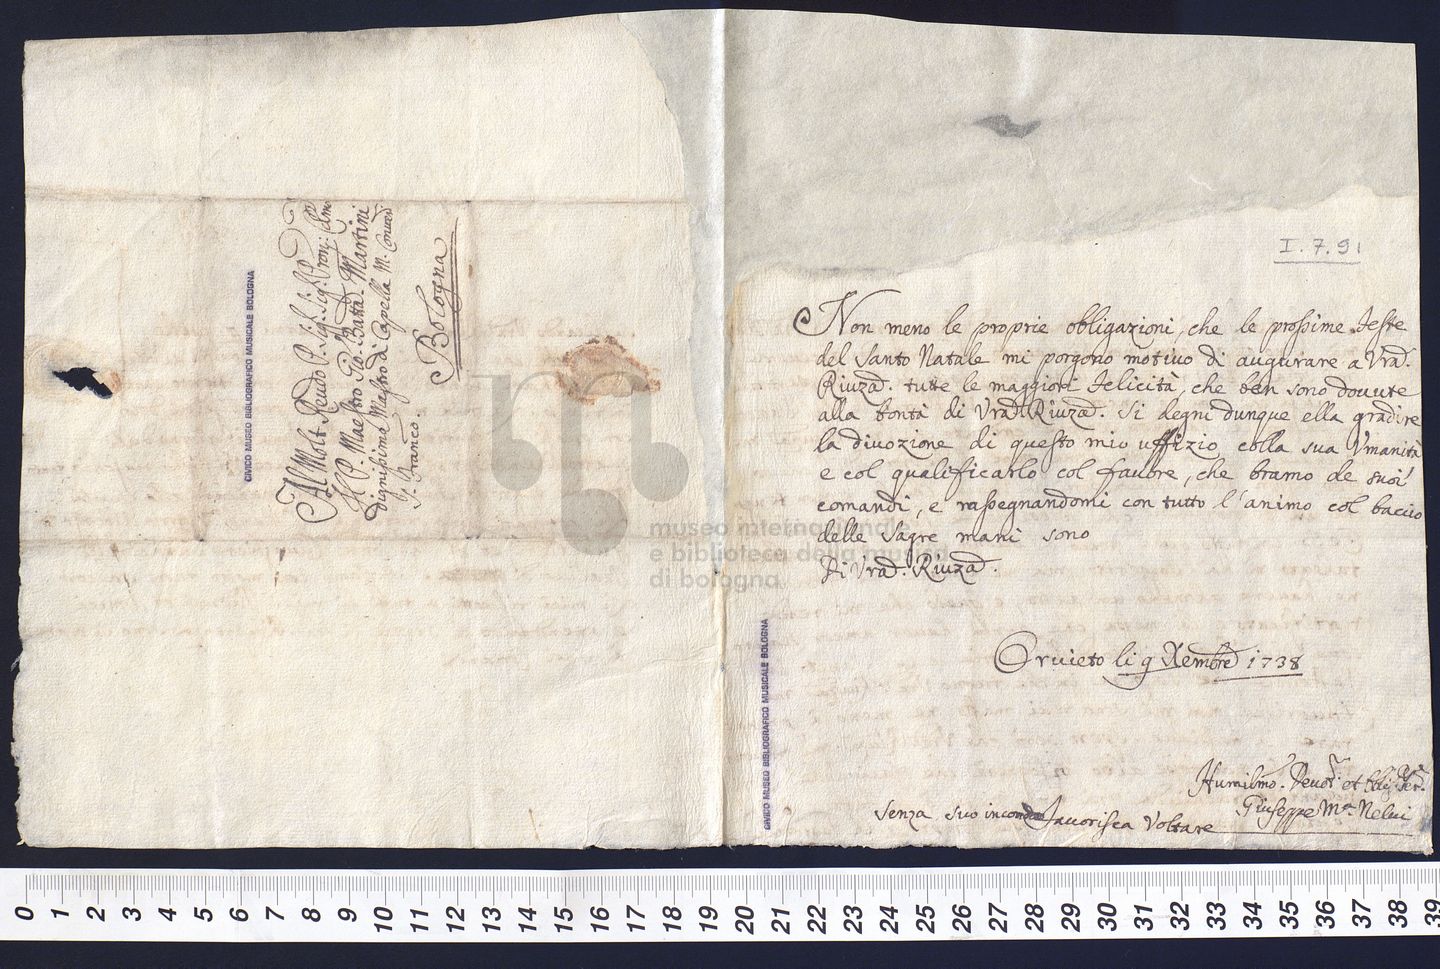 Al Molt Reudo P. Sig: Sig: P'ron: Colmo
Il P. Maestro Gio: Batta Martini
Dignissimo Maestro di Capella M. Conuent
S. Franco.
Bologna
CIVICO MUSEO BIBLIOGRAFICO MUSICALE BOLOGNA
I.7.91
Non meno le proprie obligazioni, che le prossime Feste
del Santo Natale mi porgono motiuo di augurare a Vrad.
Riuzad. tutte le maggiori felicità, che ben sono douute
alla bontà di Vrad. Riuzad. Si degni dunque ella gradire
la diuozione di questo mio uffizio colla sua Vmanità
e col qualificarlo col fauore, che bramo de suoi
comandi, e rassegnandomi con tutto l'animo col baccio
delle Sagre mani sono
Di Vrad. Riuzad.
Oruieto li 9 Xembre 1738
Humilmo. Deuot. et Obligr. Ser.
Giuseppe Ma. Nelui
Senza suo incomdo fauorisca Voltare
CIVICO MUSEO BIBLIOGRAFICO MUSICALE BOLOGNA
museo internazionale
e biblioteca della musica
di bologna
0 1 2 3 4 5 6 7 8 9 10 11 12 13 14 15 16 17 18 19 20 21 22 23 24 25 26 27 28 29 30 31 32 33 34 35 36 37 38 39